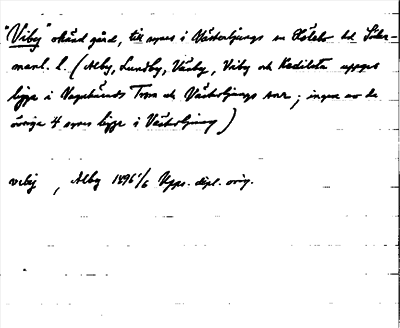 "Viby" okänd gård, till synes i Västerljungs sn Hölebo hd Söder-
manl. l. (Alby, Lundby, Väsby, Viby och Kadilsta uppges
ligga i Vagnhärads Trosa och Västerljungs snr; ingen av de
övriga 4 synes ligga i Västerljung)
viby, Alby 1496 1/6 Upps. dipl. orig.